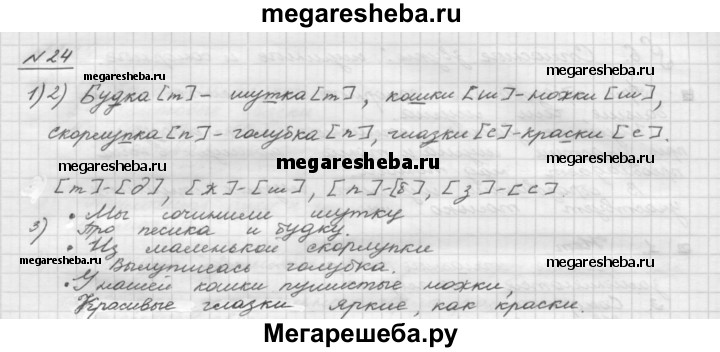 megaresheba.ru
№24
megaresheba.ru
megaresheba.ru
1)2) Будка [т] - шутка [т], кошки [ш] - ножки [ш],
скорлупка [п] - голубка [п], глазки [с] - краски [с].
megaresheba.ru
megaresheba.ru
megaresheba.ru
[т]-[д], [ж]-[ш], [п]-[б], [з]-[с].
3) • Мы сочинили шутку
Про песика и будку.
• Из маленькой скорлупки
Вылупилась голубка.
megaresheba.ru
megaresheba.ru
• У нашей кошки пушистые ножки,
Красивые глазки яркие, как краски.
megaresheba.ru
Мегарешеба.ру